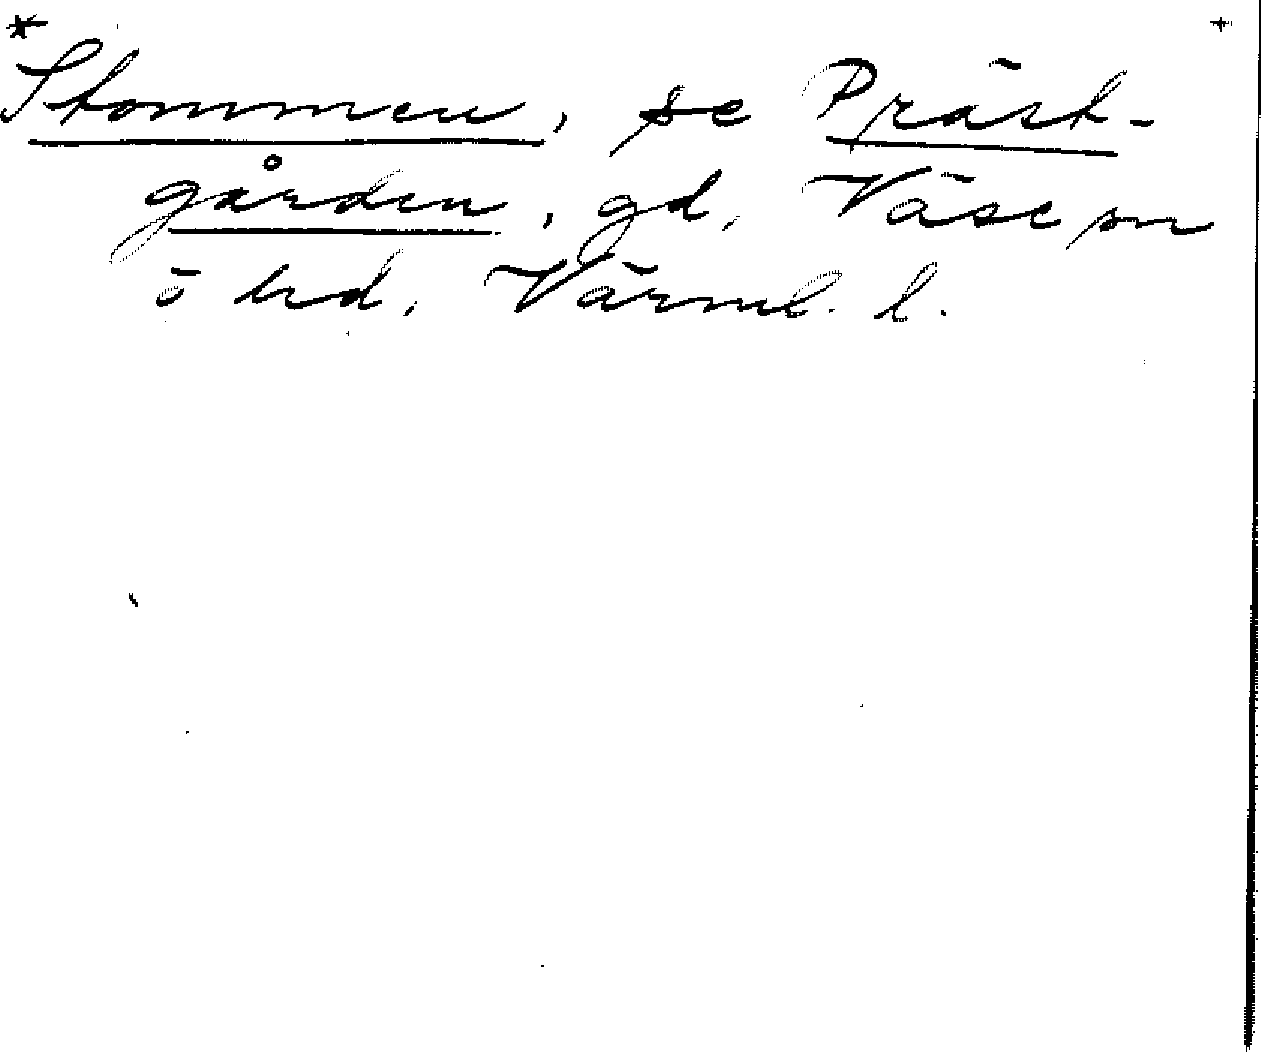 * +
Stommen, se Präst-
gården, gd, Väse sn
o hd, Värml. l.